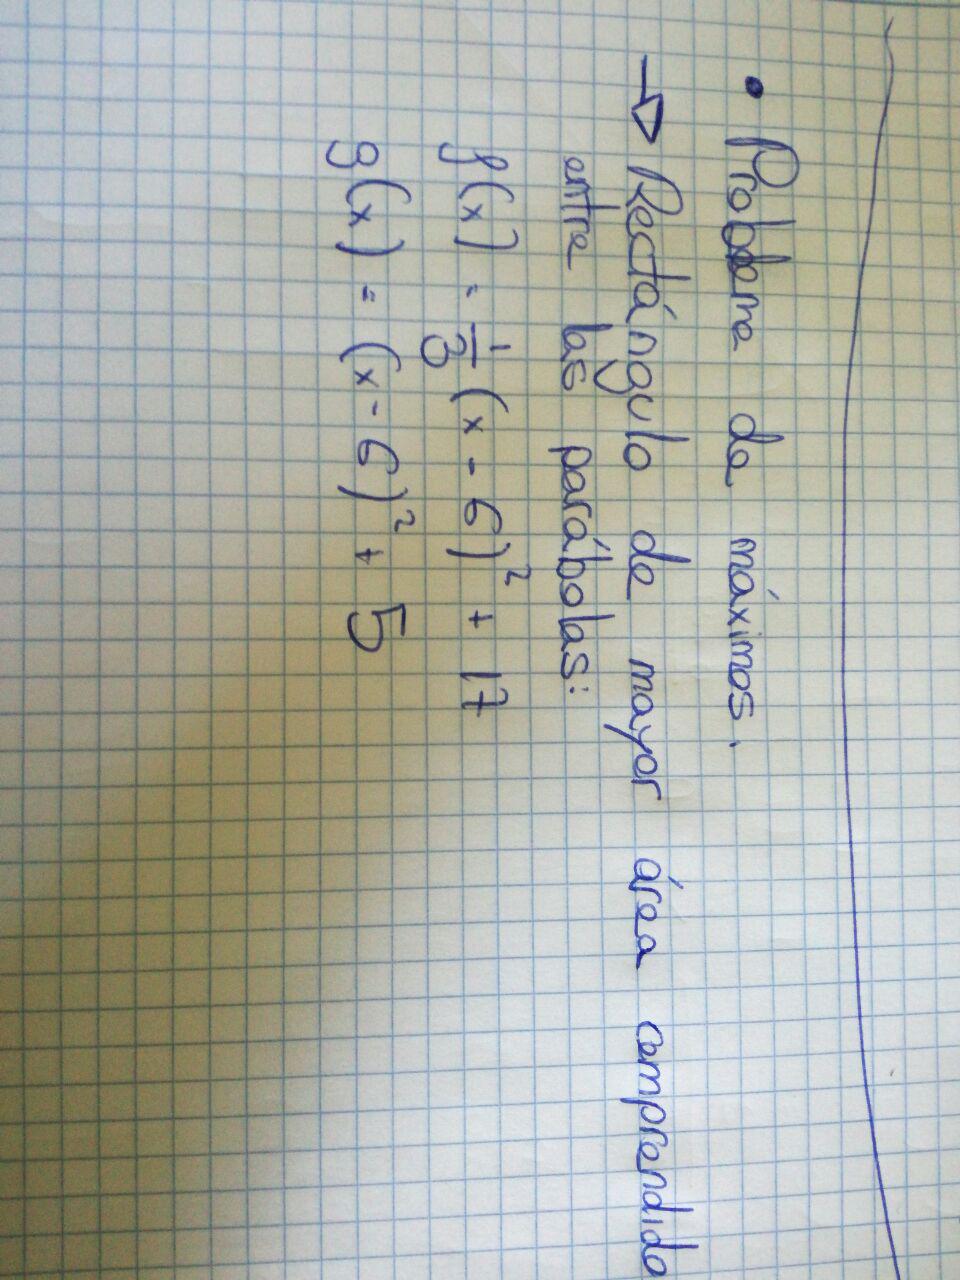 • Problema de máximos.
→ Rectángulo de mayor área comprendido
entre las parábolas:
f(x) = 1/3 (x - 6)² + 17
g(x) = (x - 6)² + 5